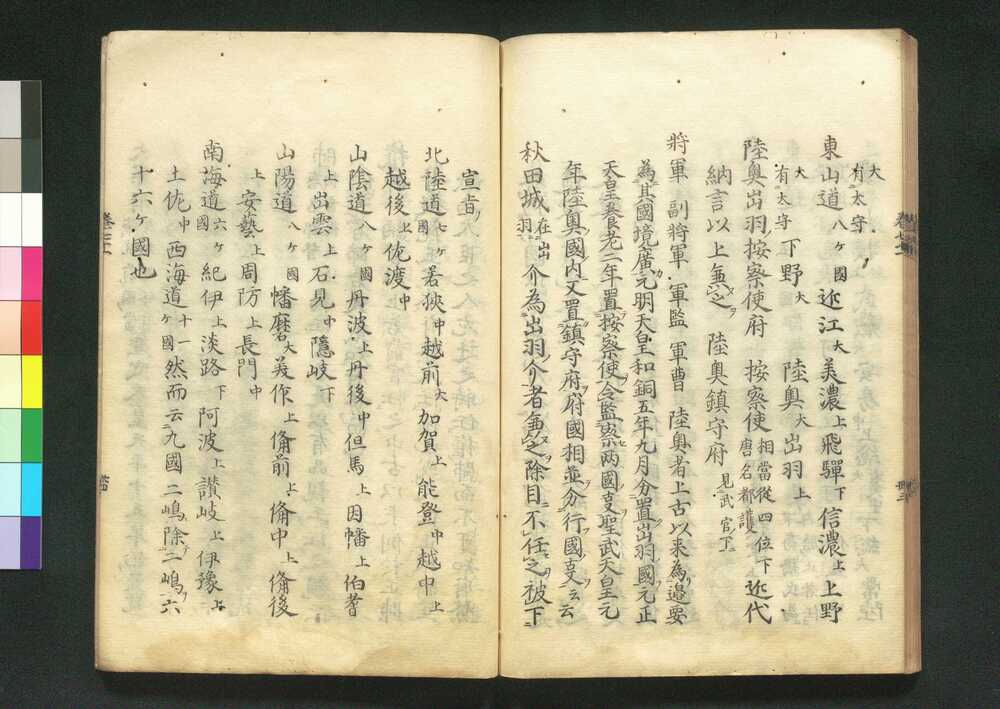 大
有太守
東山道八ケ國近江大美濃上飛騨下信濃上上野
大有太守下野大陸奥大出羽上
陸奥出羽按察使府 按察使 相當從四位下 唐名都護 近代
納言以上兼之 陸奥鎮守府 見武官下
將軍 副將軍 軍監 軍曹 陸奥者上古以来為邉要
為其國境廣元明天皇和銅五年九月分置出羽國元正
天皇養老二年置按察使令監察两國支聖武天皇元
年陸奥國内又置鎮守府府國相並分行國支云云
秋田城在出羽介為出羽介者兼之除目不任之被下
宣旨
北陸道七ケ國若狹中越前大加賀上能登中越中上
越後上佐渡中
山陰道八ケ國丹波上丹後中但馬上因幡上伯耆
上出雲上石見中隠岐下
山陽道八ケ國幡磨大美作上備前上備中上備後
上安藝上周防上長門中
南海道六ケ國紀伊上淡路下阿波上讃岐上伊豫上
土佐中西海道十一ケ國然而云九國二嶋除二嶋六
十六ケ國也